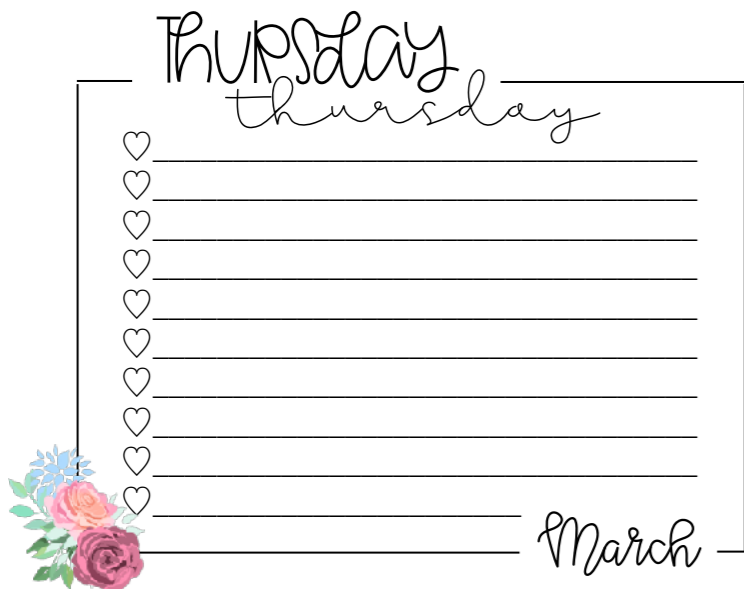 Thursday
thursday
March